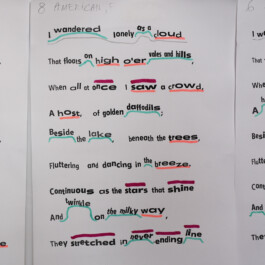 8 AMERICAN
I wandered lonely as a cloud
That floats on high o'er vales and hills,
When all at once I saw a crowd,
A host, of golden daffodils;
Beside the lake, beneath the trees,
Fluttering and dancing in the breeze.
Continuous as the stars that shine
And twinkle on the milky way,
They stretched in never-ending line